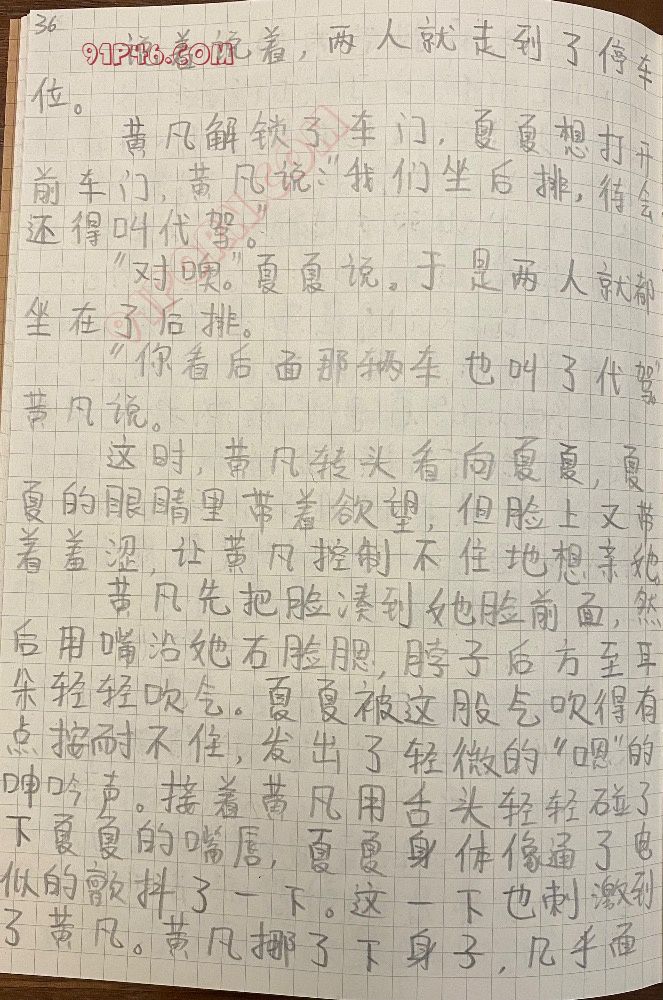 36
说着说着，两人就走到了停车
91P46.COM
位。
黄凡解锁了车门，夏夏想打开
前车门，黄凡说：“我们坐后排，待会
还得叫代驾。”
“对噢。”夏夏说。于是两人就都
坐在了后排。
“你看后面那辆车也叫了代驾。”
黄凡说。
这时，黄凡转头看向夏夏，夏
夏的眼睛里带着欲望，但脸上又带
着羞涩，让黄凡控制不住地想亲她
黄凡先把脸凑到她脸前面，然
后用嘴沿她右脸腮，脖子后方至耳
朵轻轻吹气。夏夏被这股气吹得有
点按耐不住，发出了轻微的“嗯”的
呻吟声。接着黄凡用舌头轻轻碰了
下夏夏的嘴唇，夏夏身体像通了电
似的颤抖了一下。这一下也刺激到
了黄凡。黄凡挪了下身子，几乎面